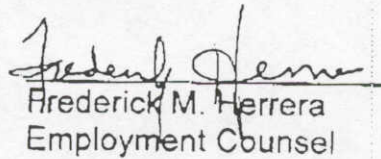 Frederick Herrera
Frederick M. Herrera
Employment Counsel